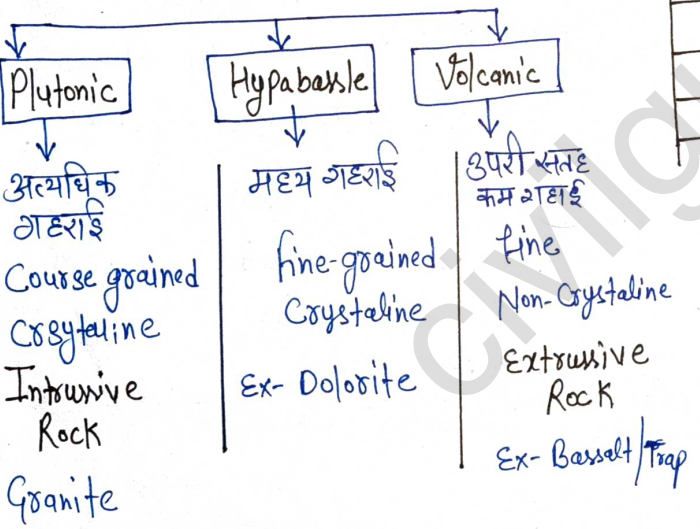 Plutonic
अत्यधिक
गहराई
Course grained
Crsytaline
Intrussive
Rock
Granite
Hypabassle
मध्य गहराई
fine-grained
Crystaline
Ex- Dolorite
Volcanic
उपरी सतह
कम गहाई
fine
Non-Crystaline
Extrussive
Rock
Ex- Bassalt/Trap
civilgu